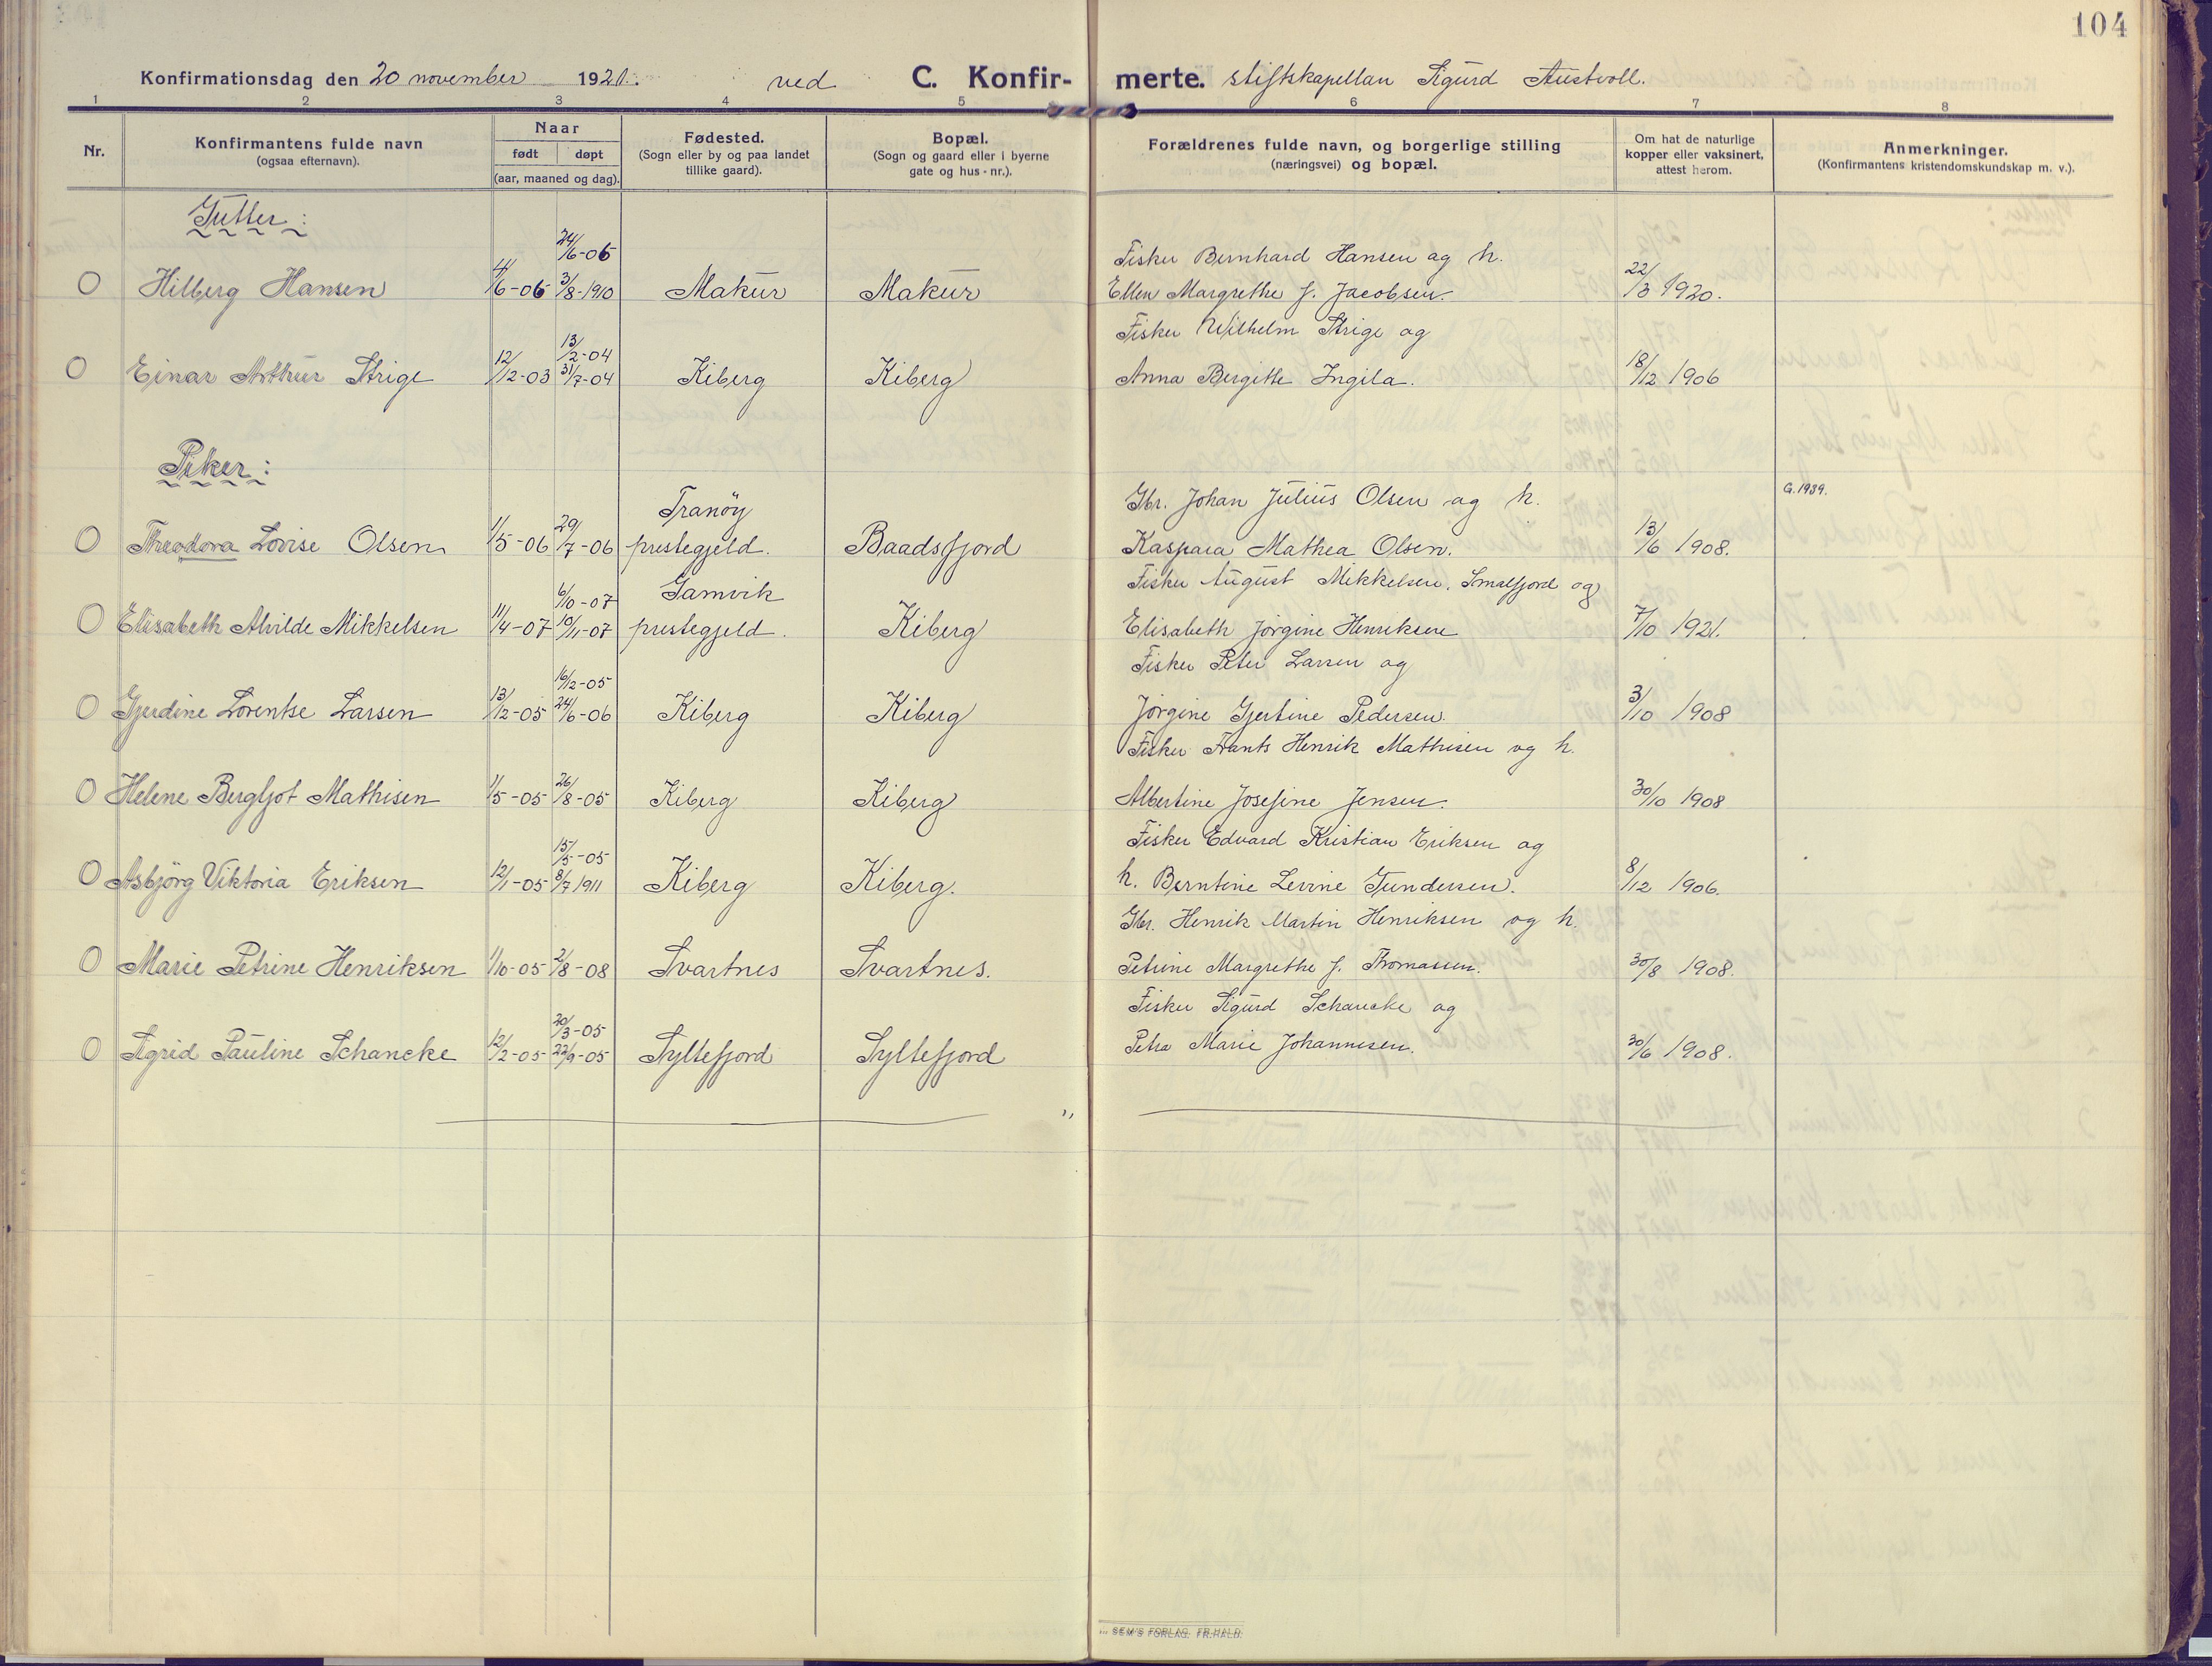 104
Konfirmationsdag den 20 november 1921. ved C. Konfir- merte. stiftskapellan Sigurd Austvoll.
1 2 3 4 5 6 7 8
Nr. Konfirmantens fulde navn (ogsaa efternavn). Naar født døpt (aar, maaned og dag). Fødested. (Sogn eller by og paa landet tillike gaard). Bopæl. (Sogn og gaard eller i byerne gate og hus-nr.). Forældrenes fulde navn, og borgerlige stilling (næringsvei) og bopæl. Om hat de naturlige kopper eller vaksinert, attest herom. Anmerkninger. (Konfirmantens kristendomskundskap m. v.).
Gutter:
24/6-06 Fisker Bernhard Hansen og h.
O Hilberg Hansen 4/6-06 3/8-1910 Makur Makur Ellen Margrethe f. Jacobsen. 22/3 1920.
13/2-04 Fisker Wilhelm Strige og
O Einar Arthur Strige 12/12-03 31/7-04 Kiberg Kiberg Anna Bergitte Ingila. 18/12 1906
Piker:
Tranöy Gbr. Johan Julius Olsen og h. G. 1939.
O Theodora Lovise Olsen 1/5-06 29/7-06 prestegjeld. Baadsfjord Kaspara Mathea Olsen. 13/6 1908.
6/10-07 Gamvik Fisker August Mikkelsen, Smalfjord og
O Elisabeth Alvilde Mikkelsen 11/4-07 10/11-07 prestegjeld. Kiberg Elisabeth Jörgine Henriksen 7/10 1921.
16/12-05 Fisker Peter Larsen og
O Gjerdine Lorentse Larsen 13/12-05 24/6-06 Kiberg Kiberg Jörgine Gjertine Pedersen. 3/10 1908
Fisker Frants Henrik Mathisen og h.
O Helene Bergljot Mathisen 1/5-05 26/8-05 Kiberg Kiberg Albertine Josefine Jensen. 30/10 1908
15/5-05 Fisker Edvard Kristian Eriksen og
O Asbjörg Viktoria Eriksen 12/1-05 8/7 1911 Kiberg Kiberg. h. Berntine Levine Gundersen. 8/12 1906.
Gbr. Henrik Martin Henriksen og h.
O Marie Petrine Henriksen 1/10-05 2/8-08 Svartnes Svartnes. Petrine Margrethe f. Thomassen. 30/8 1908.
20/3-05 Fisker Sigurd Schancke og
O Sigrid Pauline Schancke 12/2-05 22/9-05 Syltefjord Syltefjord Petra Marie Johannesen. 30/6 1908.
SEM'S FORLAG. FR.HALD.